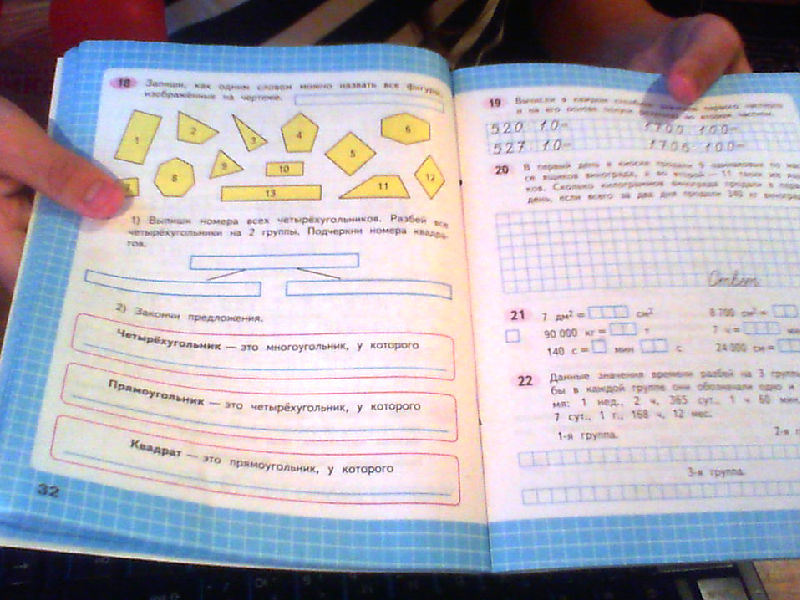 18 Запиши, как одним словом можно назвать все фигуры,
изображённые на чертеже.
1 2 3 4 5 6
8 9 10 11 12
13
1) Выпиши номера всех четырёхугольников. Разбей все
четырёхугольники на 2 группы. Подчеркни номера квадра-
тов.
2) Закончи предложения.
Четырёхугольник — это многоугольник, у которого
Прямоугольник — это четырёхугольник, у которого
Квадрат — это прямоугольник, у которого
32
19 Вычисли в каждом столбике значение первого частного
и на его основе получи во втором частном.
520 10= 1700 100=
527 10= 1706 100=
20 В первый день в киоске продали 5 одинаковых по мас-
се ящиков винограда, а во второй — 11 таких же ящи-
ков. Сколько килограммов винограда продали в первый
день, если всего за два дня продали кг винограда
Ответ
21 7 дм² = см² 8 700 см² =
90 000 кг = т 7 ч = мин
140 с = мин с 24 000 см =
22 Данные значения времени разбей на 3 группы
бы в каждой группе они обозначали одно и
мя: 1 нед., 2 ч, 365 сут., 1 ч 60 мин,
7 сут., 1 г., 168 ч, 12 мес.
1-я группа. 2-я г
3-я группа.